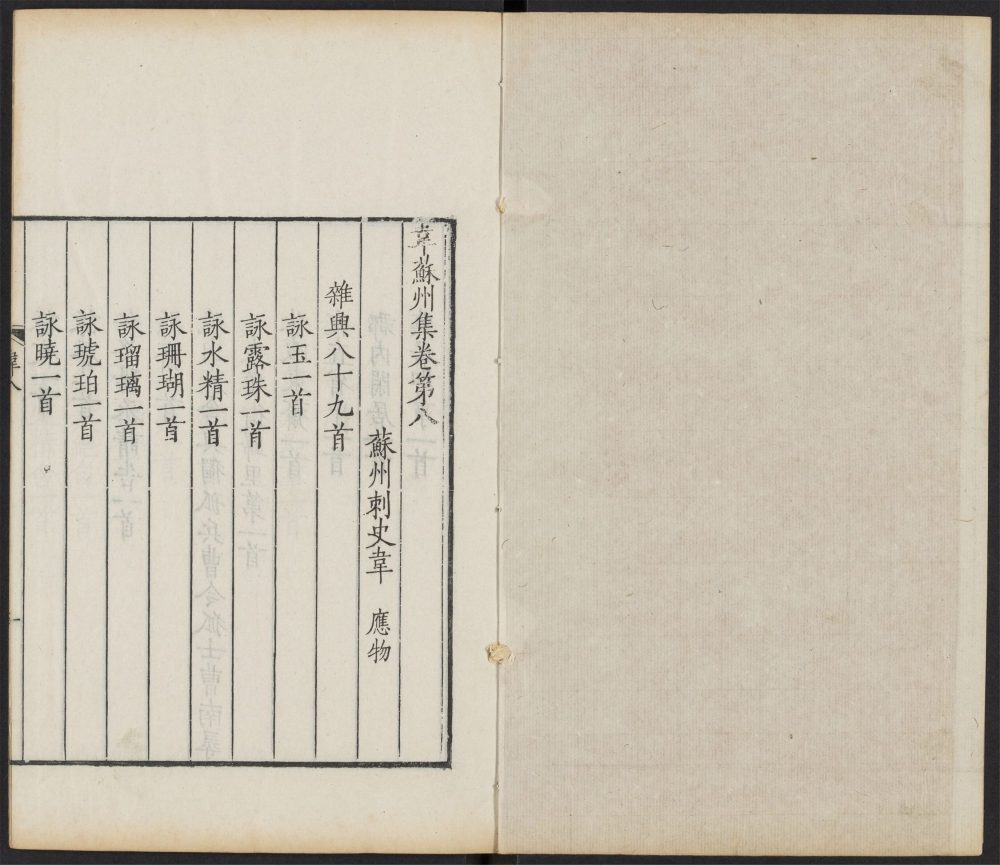 韋蘇州集卷第八
蘇州刺史韋 應物
雜興八十九首
詠玉一首
詠露珠一首
詠水精一首
詠珊瑚一首
詠瑠璃一首
詠琥珀一首
詠曉一首
韋八